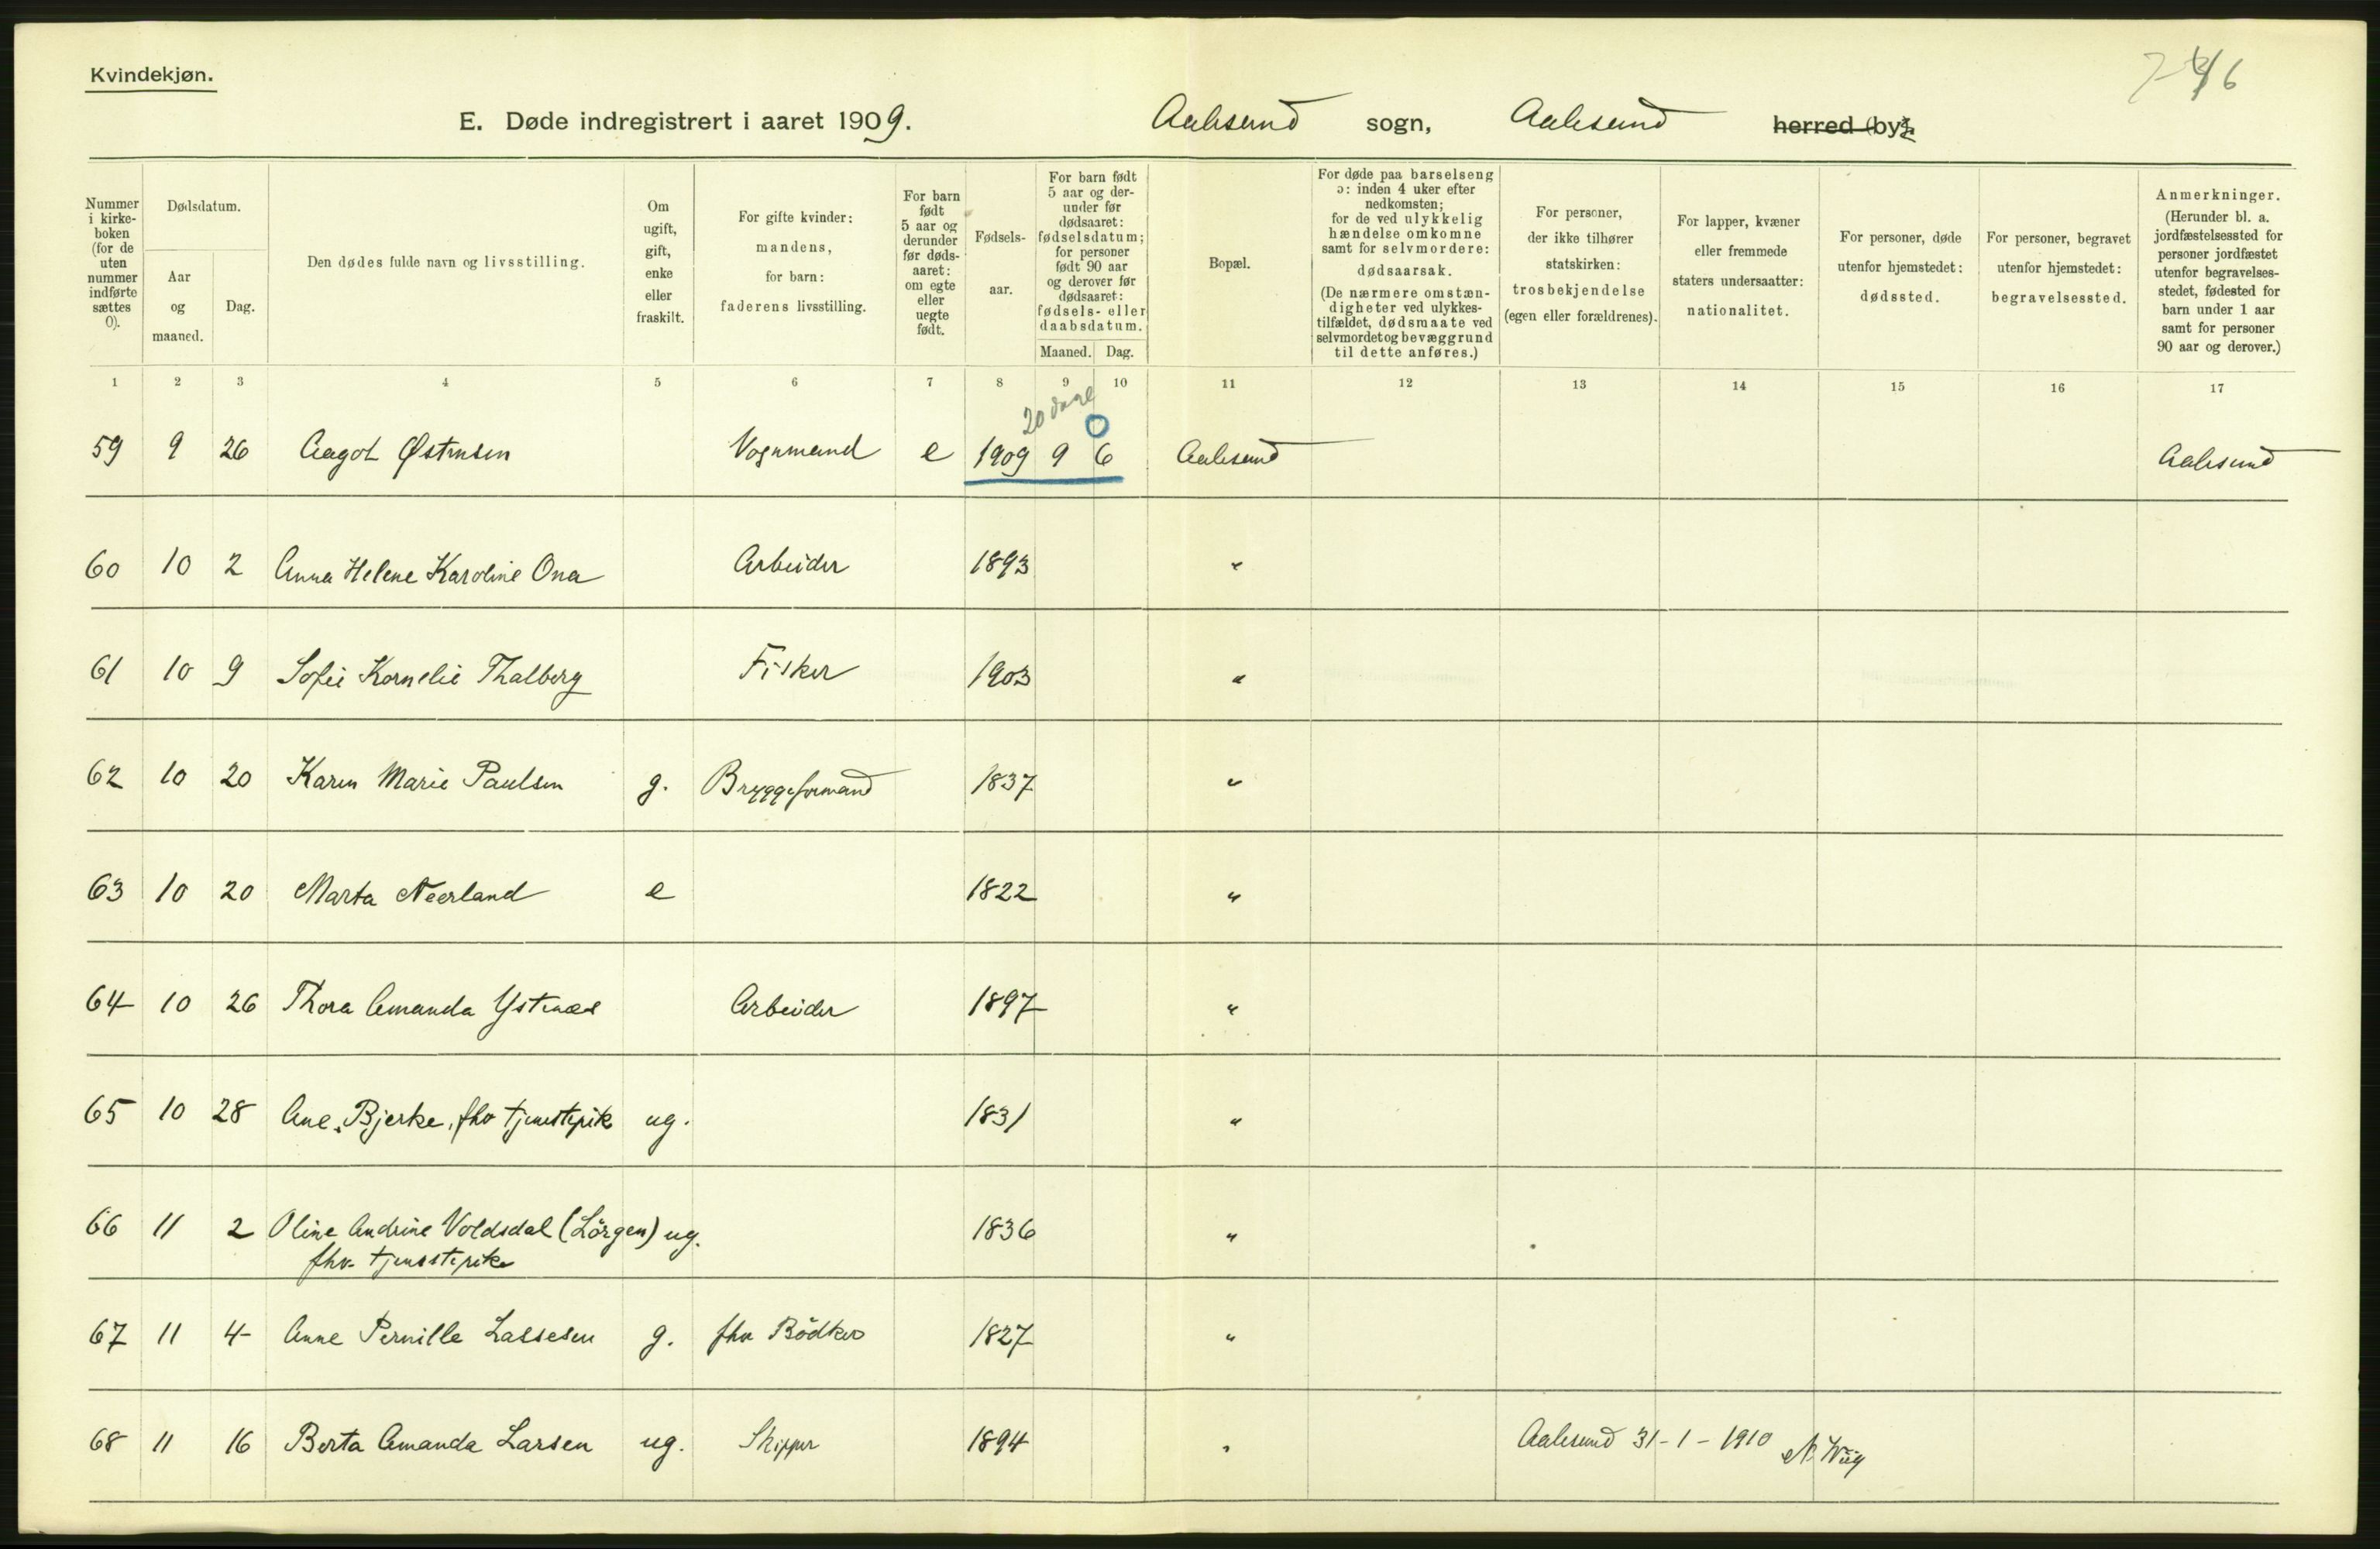 Kvindekjøn.
7 46
E. Døde indregistrert i aaret 1909. Aalesund sogn, Aalesund herred (by).
Nummer i kirke-boken (for de uten nummer indførte sættes 0).
Dødsdatum.
Aar og maaned.
Dag.
Den dødes fulde navn og livsstilling.
Om ugift, gift, enke eller fraskilt.
For gifte kvinder: mandens, for barn: faderens livsstilling.
For barn født 5 aar og derunder før døds-aaret: om egte eller uegte født.
Fødsels-aar.
For barn født 5 aar og der-under før dødsaaret: fødselsdatum; for personer født 90 aar og derover før dødsaaret: fødsels- eller daabsdatum.
Maaned. Dag.
Bopæl.
For døde paa barselseng ɔ: inden 4 uker efter nedkomsten; for de ved ulykkelig hændelse omkomne samt for selvmordere: dødsaarsak. (De nærmere omstæn-digheter ved ulykkes-tilfældet, dødsmaate ved selvmordet og bevæggrund til dette anføres.)
For personer, der ikke tilhører statskirken: trosbekjendelse (egen eller forældrenes).
For lapper, kvæner eller fremmede staters undersaatter: nationalitet.
For personer, døde utenfor hjemstedet: dødssted.
For personer, begravet utenfor hjemstedet: begravelsessted.
Anmerkninger. (Herunder bl. a. jordfæstelsessted for personer jordfæstet utenfor begravelses-stedet, fødested for barn under 1 aar samt for personer 90 aar og derover.)
1 2 3 4 5 6 7 8 9 10 11 12 13 14 15 16 17
20 dage
0
59 9 26 Aagot Østensen Vognmand e 1909 9 6 Aalesund Aalesund
60 10 2 Anna Helene Karoline Ona Arbeider 1893 "
61 10 9 Sofie Kornelie Thalberg Fisker 1903 "
62 10 20 Karen Marie Paulsen g. Bryggeformand 1837 "
63 10 20 Marta Neerland e 1822 "
64 10 26 Thora Amanda Ystenæs Arbeider 1897 "
65 10 28 Ane Bjerke, fhv tjenstepike ug. 1831 "
66 11 2 Oline Andrine Voldsdal (Lörgen) ug. 1836 "
fhv. tjenstepike
67 11 4 Anne Pernille Lassesen g. fhv Bödker 1827 "
68 11 16 Berta Amanda Larsen ug. Skipper 1894 " Aalesund 31-1-1910 N. Wiig